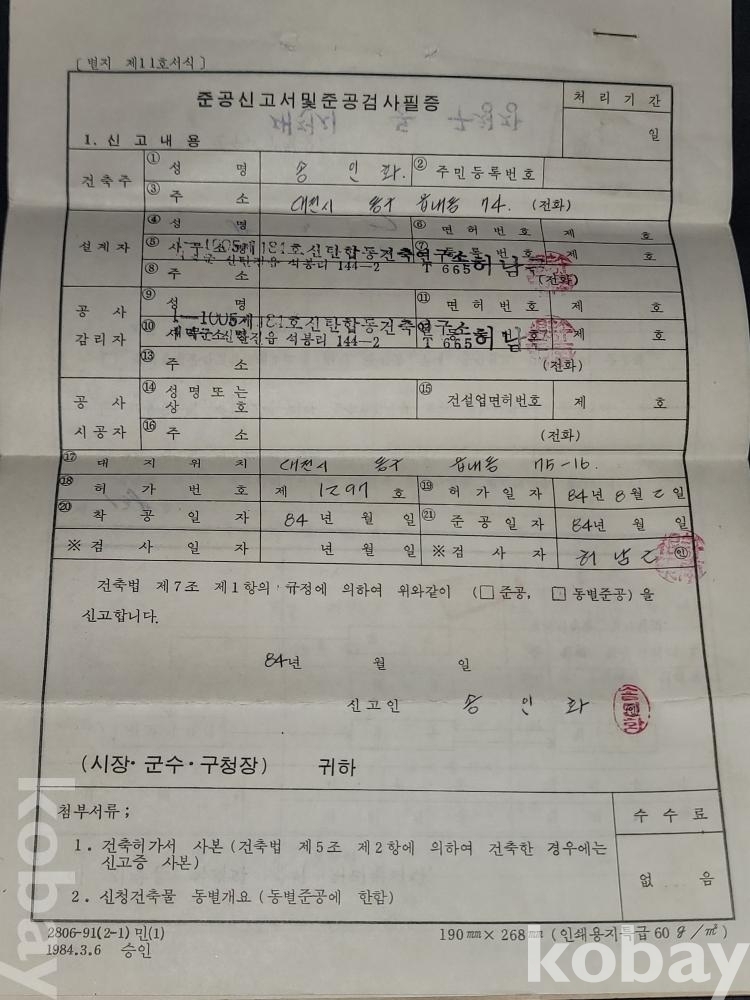 [ 별지 제11호서식 ]
준공신고서및준공검사필증
처 리 기 간
일
1. 신 고 내 용
건축주
① 성 명
송 인 화.
② 주민등록번호
③ 주 소
대전시 동구 읍내동 74. (전화)
설계자
④ 성 명
⑥ 면 허 번 호 제 호
⑤ 사무소명
1-1005제181호신탄합동건축연구소허 남
⑦ 등 록 번 호 제 호
신탄진읍 석봉리 144-2 T 665
⑧ 주 소
(전화)
공 사
감리자
⑨ 성 명
⑪ 면 허 번 호 제 호
1-1005제181호신탄합동건축연구소허 남
⑩
대덕군 신탄진읍 석봉리 144-2 T 665
제 호
⑬ 주 소
(전화)
공 사
시공자
⑭ 성 명 또 는
상 호
⑮ 건설업면허번호 제 호
⑯ 주 소
(전화)
⑰ 대 지 위 치
대전시 동구 읍내동 75-16.
⑱ 허 가 번 호 제 1297 호 ⑲ 허 가 일 자 84년 8월 2일
⑳ 착 공 일 자 84년 월 일 ㉑ 준 공 일 자 84년 월 일
※ 검 사 일 자 년 월 일 ※ 검 사 자 허 남 ㊞
건축법 제7조 제1항의 규정에 의하여 위와같이 (□ 준공, □ 동별준공) 을
신고합니다.
84년 월 일
신고인 송 인 화
(시장· 군수· 구청장) 귀하
첨부서류 ;
수 수 료
1. 건축허가서 사본 (건축법 제5조 제2항에 의하여 건축한 경우에는
신고증 사본)
없 음
2. 신청건축물 동별개요 (동별준공에 한함)
2806-91(2-1) 민(1)
1984.3.6 승인
190㎜× 268㎜ (인쇄용지특급 60g/㎡)
kobay
kobay